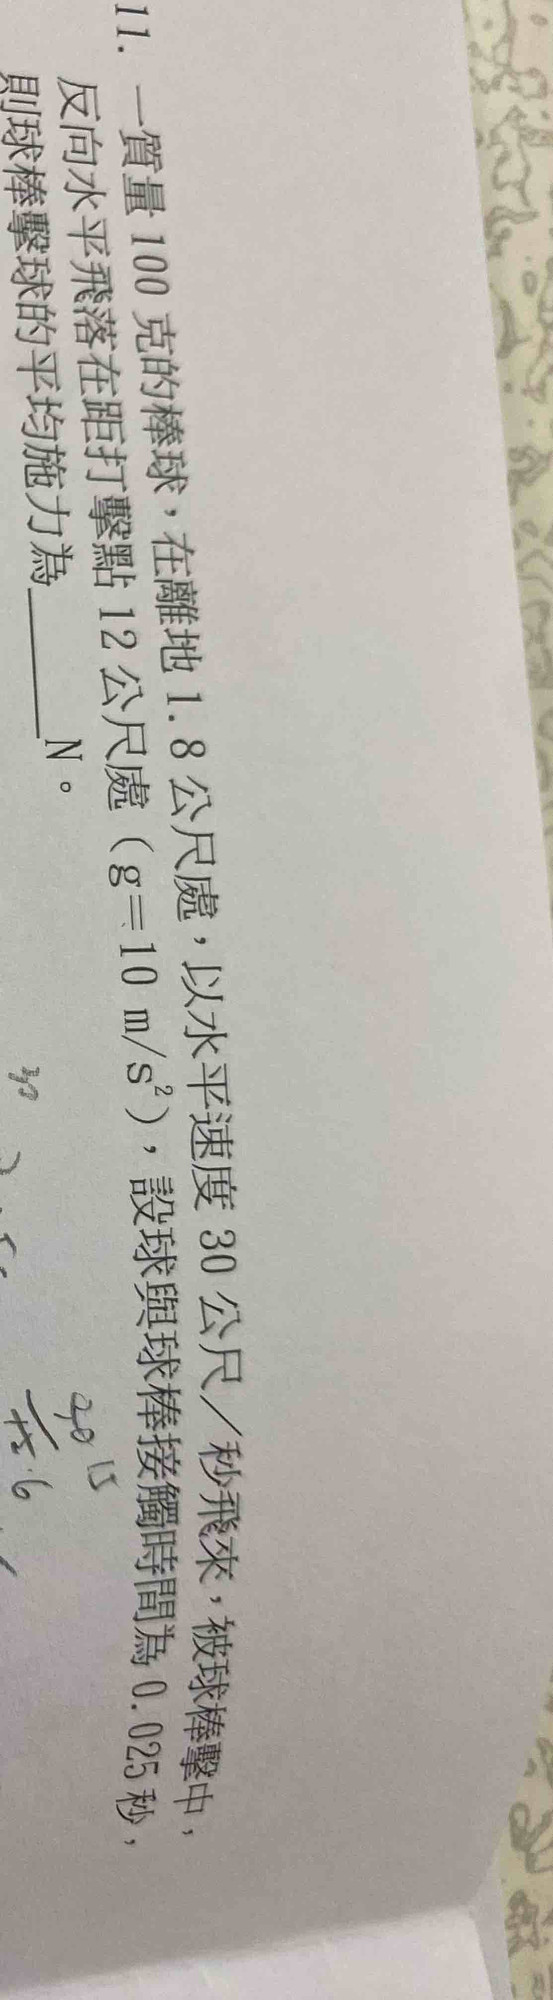 11. 一質量 100 克的棒球，在離地 1.8 公尺處，以水平速度 30 公尺／秒飛來，被球棒擊中，
反向水平飛落在距打擊點 12 公尺處（g=10 m/s²），設球與球棒接觸時間為 0.025 秒，
則球棒擊球的平均施力為______N。